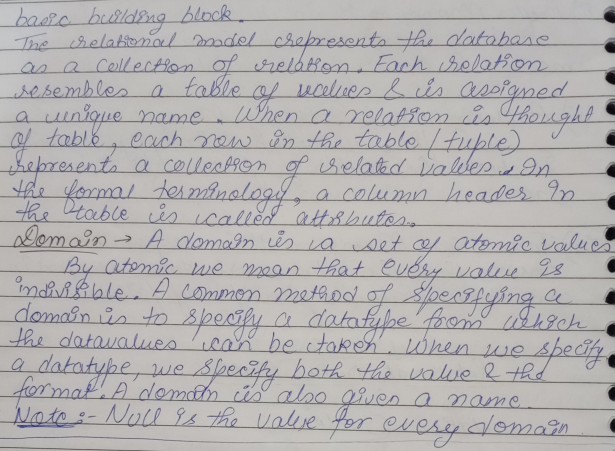 basic building block.
The relational model represents the database
as a collection of relation. Each relation
resembles a table of values & is assigned
a unique name. When a relation is thought
of table, each row in the table (tuple)
represents a collection of related values. In
the formal terminology, a column header in
the table is called attributes.
Domain → A domain is a set of atomic values
By atomic we mean that every value is
indivisible. A common method of specifying a
domain is to specify a datatype from which
the datavalues can be taken. When we specify
a datatype, we specify both the value & the
format. A domain is also given a name.
Note:- Null is the value for every domain